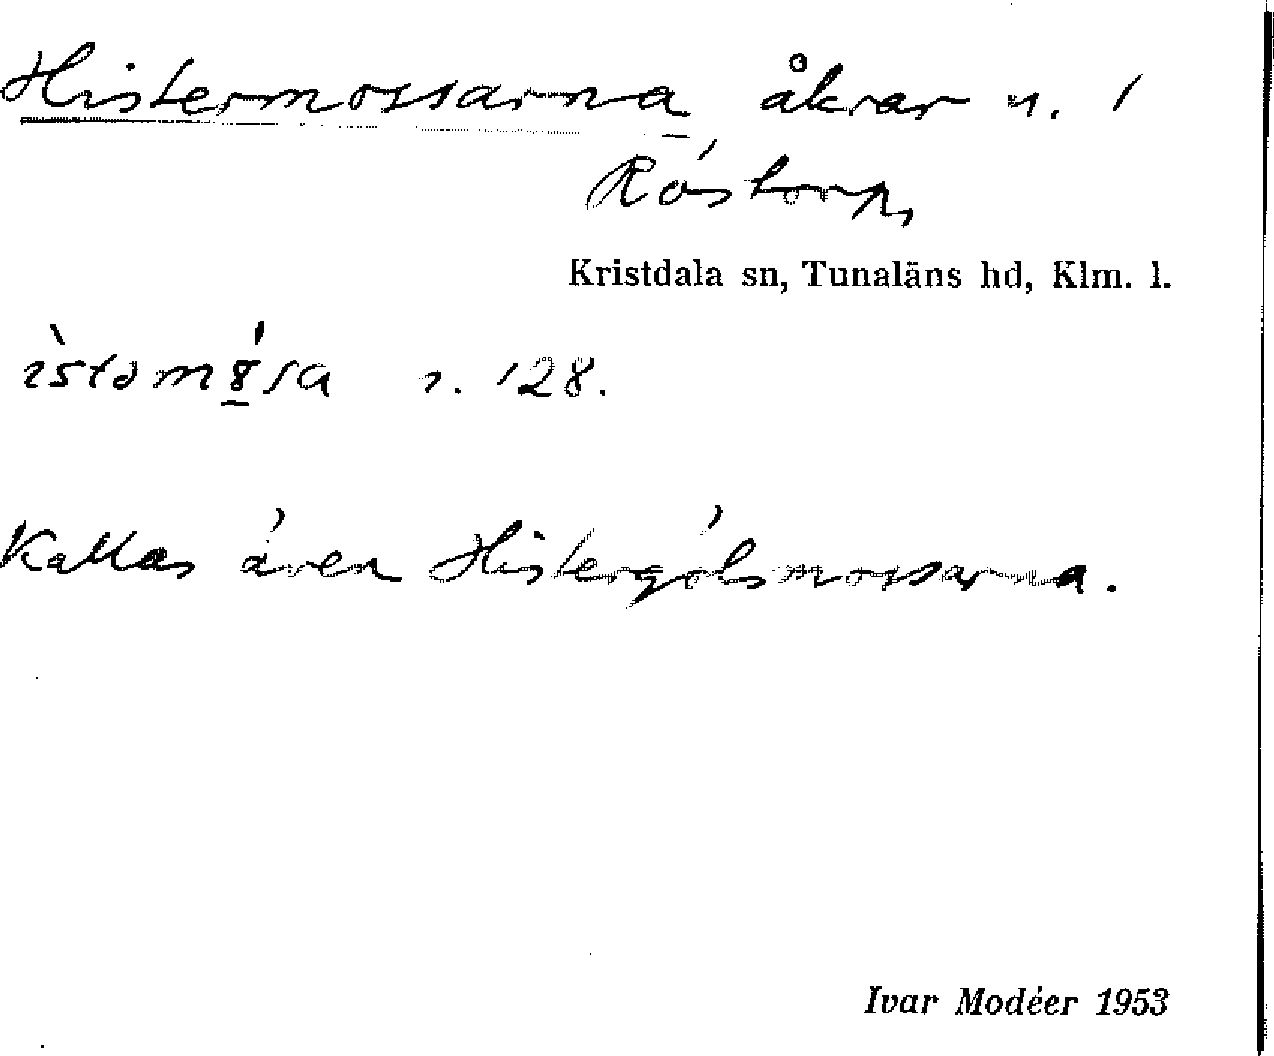 Histermossarna åkrar n. 1
Röstorp,
Kristdala sn, Tunaläns hd, Klm. l.
s. 128.
Kallas även Histergölsmossarna.
Ivar Modéer 1953